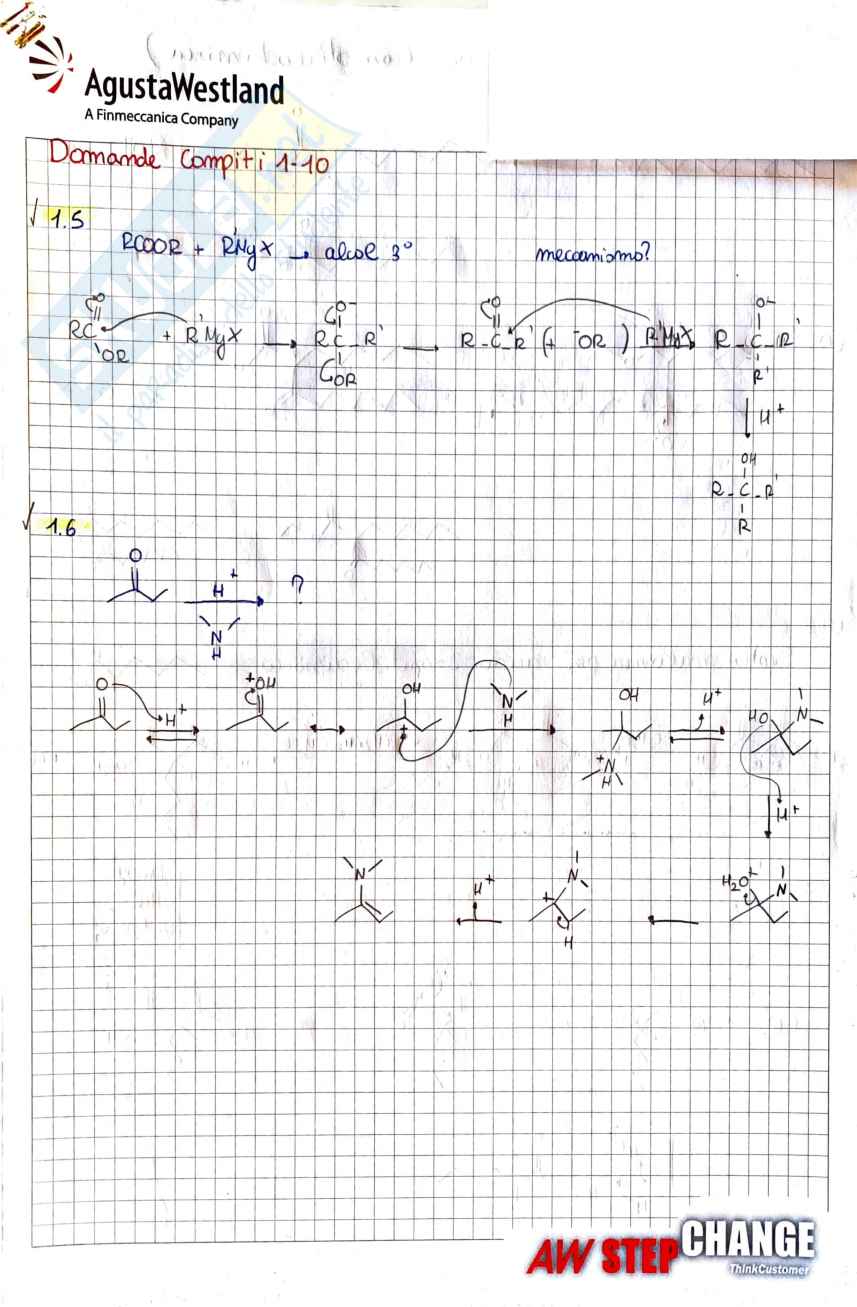 AgustaWestland
A Finmeccanica Company
Domande Compiti 1-10
√ 1.5
RCOOR + R'MgX → alcol 3° meccanismo?
O O O⁻
RC + R'MgX → RC-R' → R-C-R' (+ ⁻OR) R'MgX → R-C-R'
'OR OR R'
O⁻
H⁺
OH
R-C-R'
R
√ 1.6
O
H⁺ ?
N
H
O H⁺ ⁺OH OH N H OH H⁺ HO N
⁺N H
H⁺
N H⁺ N H₂O⁺ N
H
AW STEP CHANGE
ThinkCustomer